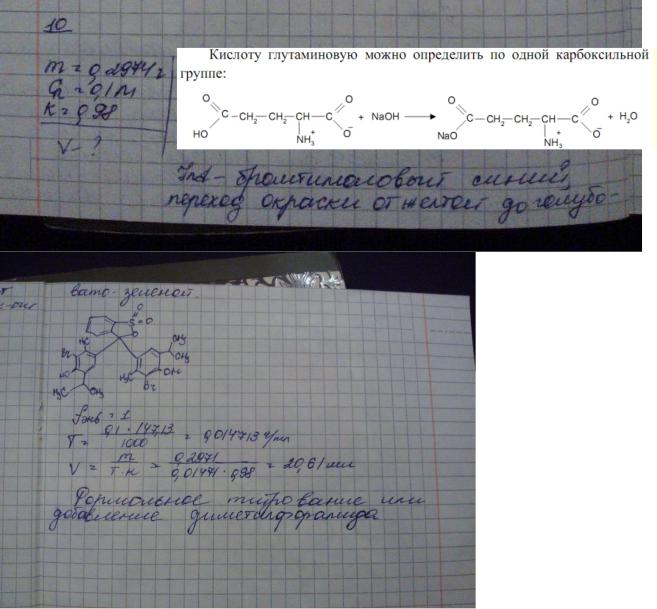 10
m = 0,2974 г
C = 0,1 м
K = 0,98
V - ?
Кислоту глутаминовую можно определить по одной карбоксильной
группе:
O HO C–CH2–CH2–CH–C O O− NH3+ + NaOH → O NaO C–CH2–CH2–CH–C O O− NH3+ + H2O
Ind - бромтимоловый синий,
переход окраски от желтой до голубо-
вато-зеленой.
O
S=O
O
H3C CH3
Br CH3
HO OH
H3C Br
H3C CH3
fэкв = 1
T = 0,1 · 147,13 / 1000 = 0,014713 г/мл
V = m / T·K = 0,2971 / 0,01471 · 0,98 = 20,61 мл
Формольное титрование или
добавление диметилформамида